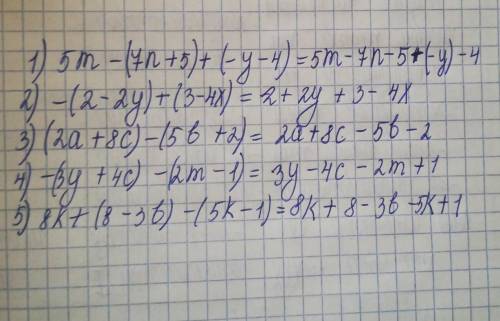 1) 5m - (7n + 5) + (-y - 4) = 5m - 7n - 5 + (-y) - 4
2) -(2 - 2y) + (3 - 4x) = 2 + 2y + 3 - 4x
3) (2a + 8c) - (5b + 2) = 2a + 8c - 5b - 2
4) -(3y + 4c) - (2m - 1) = 3y - 4c - 2m + 1
5) 8k + (8 - 3b) - (5k - 1) = 8k + 8 - 3b - 5k + 1